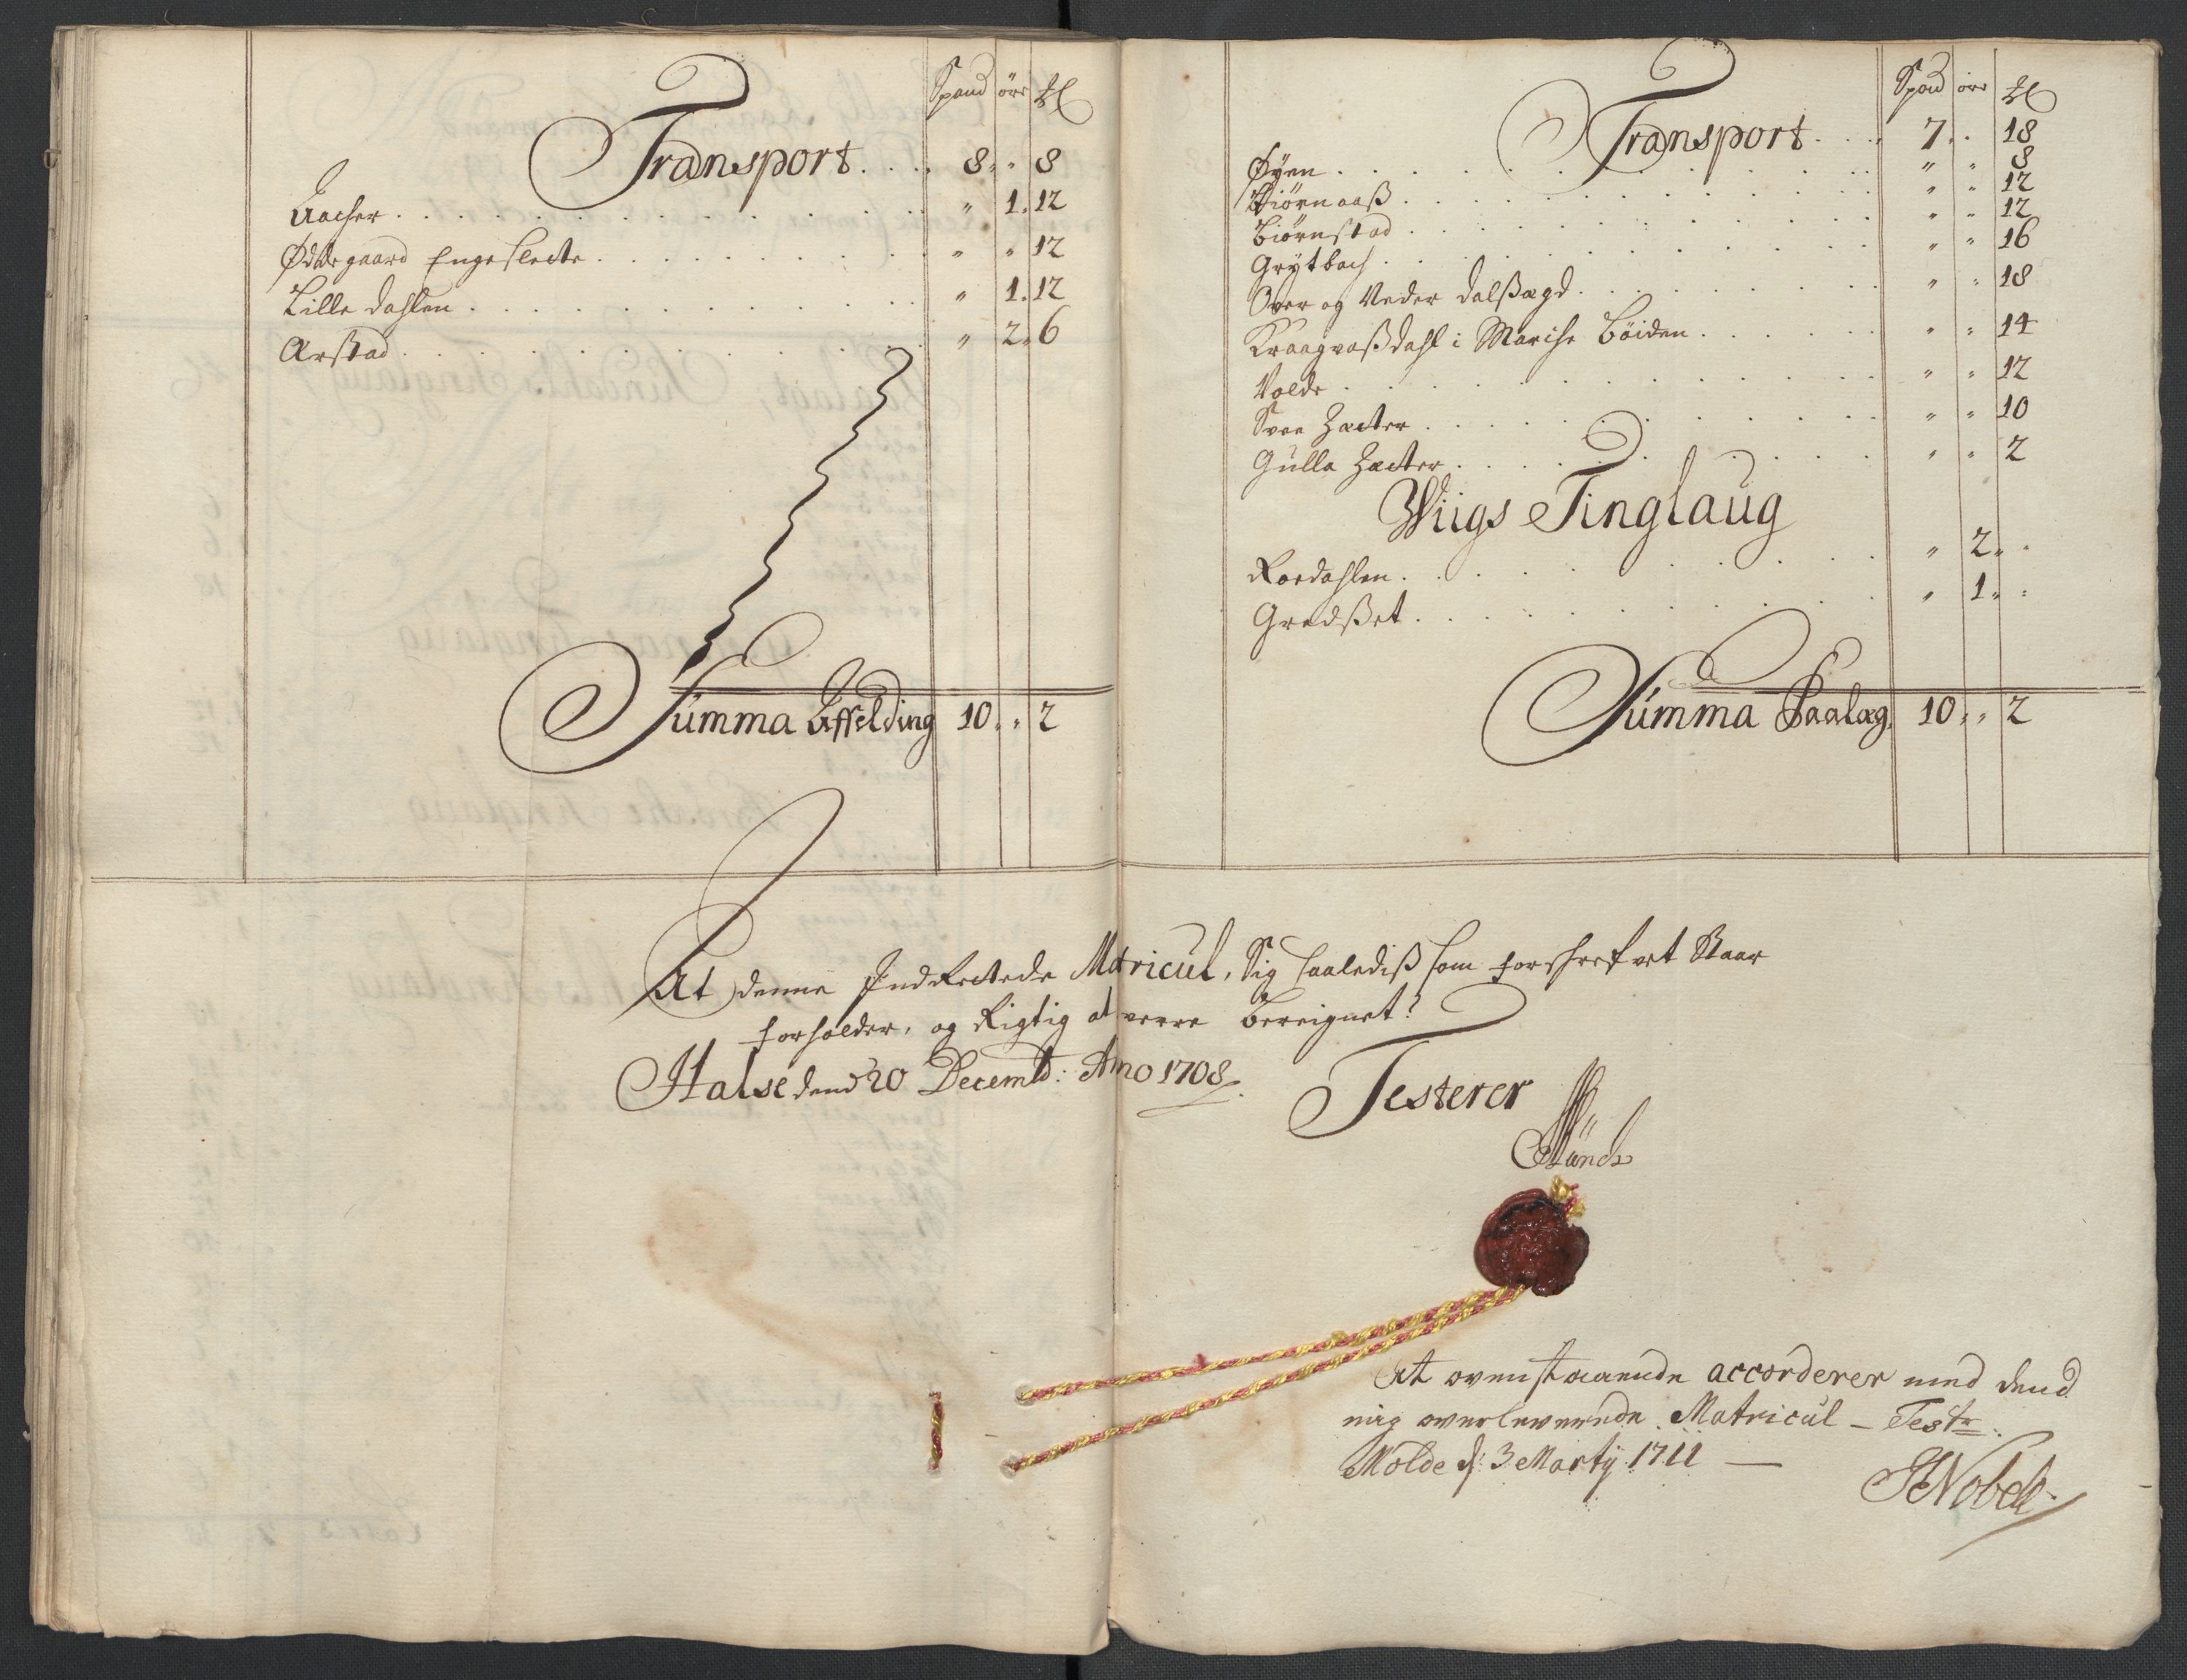 Spand øre ℔
Transport . . . . 8 „ „ 8
Aacher . . . „ 1. 12
Ødegaard Engeslette . . . „ „ 12
Lille Dahlen . . . „ 1. 12
Arstad . . . „ 2. 6
Summa Affelding 10 „ „ 2
Spand øre ℔
Transport . . . . 7 „ „ 18
Øyen . . . „ „ 8
Biørnaaß . . . „ „ 12
Biørnstad . . . „ „ 12
Grytbach . . . „ „ 16
Over og Neder Dalßægd . . . „ „ 18
Kraagvaßdahl i Marche Bøiden . . . „ „ 14
Volde . . . „ „ 12
Svan Zæter . . . „ „ 10
Gulla Zæter . . . „ „ 2
Wiigs Tinglaug
Roedahlen . . . „ 2 „
Grødßet . . . „ 1 „
Summa Paalæg 10 „ „ 2
At denne Indrettede Matricul, Sig saalediß som forskrefvet Staar
forholder, og Rigtig at være bereignet?
Halse dend 20 Decembr: Ano 1708.
Testerer
Münch
At ovenstaaende accorderer med dend
mig overleverede Matricul – Testr.
Molde d: 3 Martÿ 1711 —
Nobel